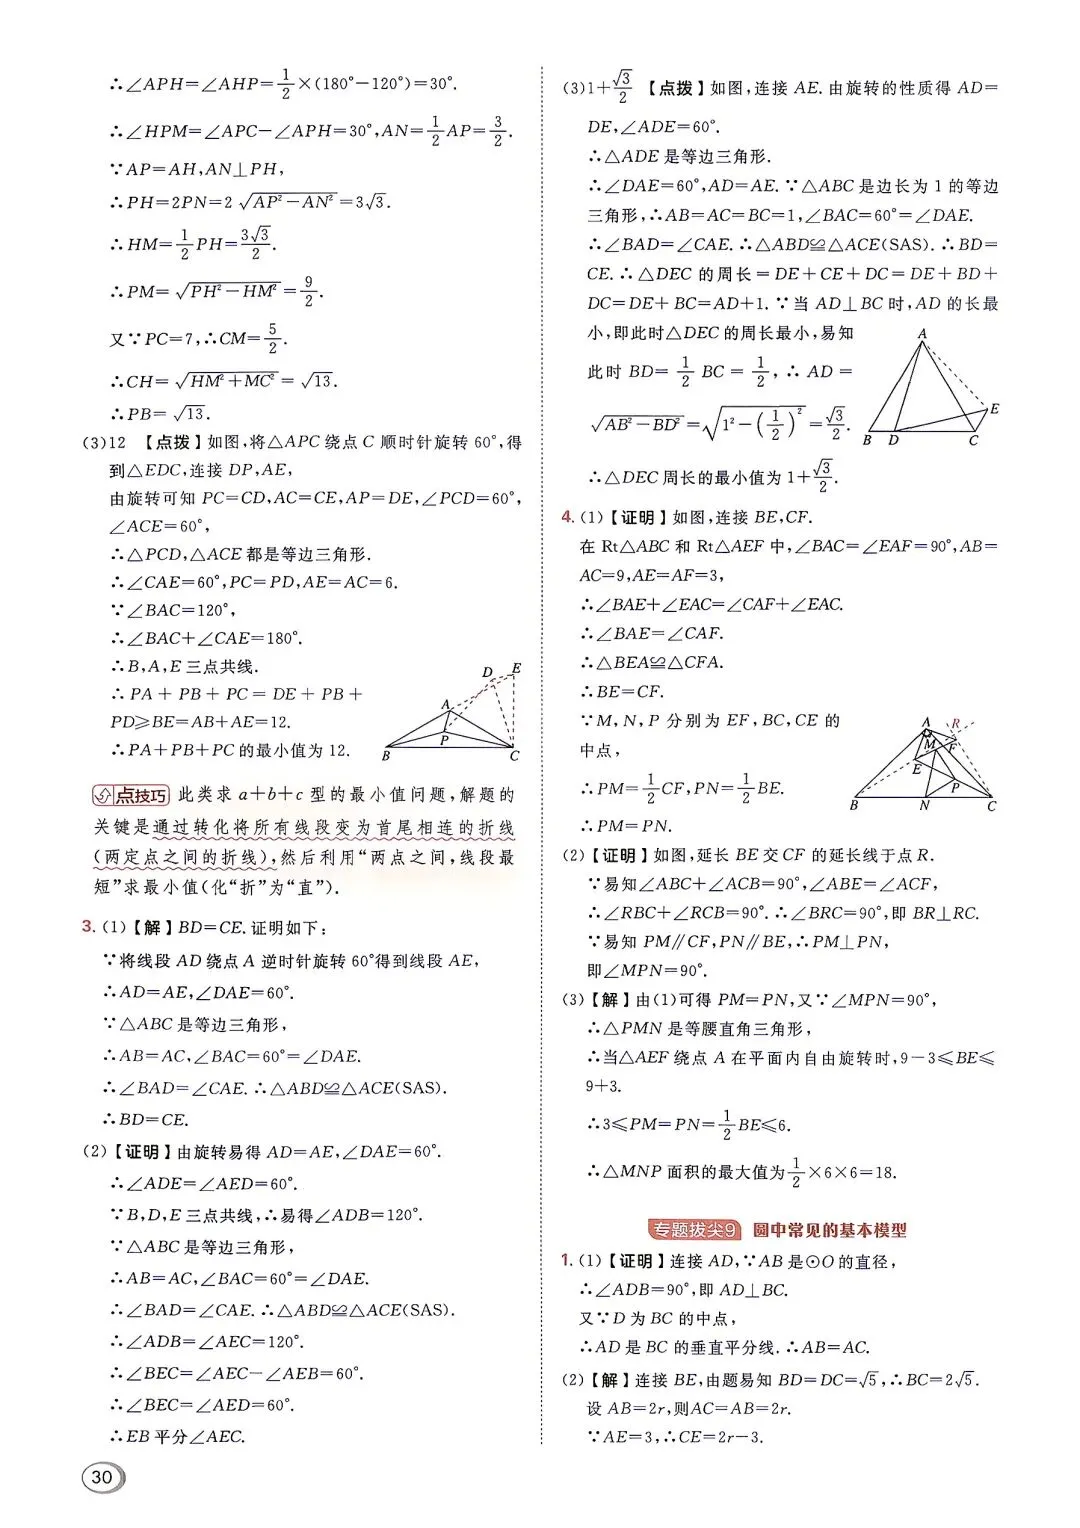 ∴∠APH=∠AHP=1/2×(180°−120°)=30°.
∴∠HPM=∠APC−∠APH=30°,AN=1/2AP=3/2.
∵AP=AH,AN⊥PH,
∴PH=2PN=2√(AP²−AN²)=3√3.
∴HM=1/2PH=3√3/2.
∴PM=√(PH²−HM²)=9/2.
又∵PC=7,∴CM=5/2.
∴CH=√(HM²+MC²)=√13.
∴PB=√13.
(3)12 【点拨】如图,将△APC绕点C顺时针旋转60°,得
到△EDC,连接DP,AE,
由旋转可知PC=CD,AC=CE,AP=DE,∠PCD=60°,
∠ACE=60°,
∴△PCD,△ACE都是等边三角形.
∴∠CAE=60°,PC=PD,AE=AC=6.
∵∠BAC=120°,
∴∠BAC+∠CAE=180°.
∴B,A,E三点共线.
∴PA+PB+PC=DE+PB+
PD≥BE=AB+AE=12.
∴PA+PB+PC的最小值为12.
A
B
C
D
E
P
点技巧 此类求a+b+c型的最小值问题,解题的
关键是通过转化将所有线段变为首尾相连的折线
(两定点之间的折线),然后利用“两点之间,线段最
短”求最小值(化“折”为“直”).
3.(1)【解】BD=CE.证明如下:
∵将线段AD绕点A逆时针旋转60°得到线段AE,
∴AD=AE,∠DAE=60°.
∵△ABC是等边三角形,
∴AB=AC,∠BAC=60°=∠DAE.
∴∠BAD=∠CAE.∴△ABD≌△ACE(SAS).
∴BD=CE.
(2)【证明】由旋转易得AD=AE,∠DAE=60°.
∴∠ADE=∠AED=60°.
∵B,D,E三点共线,∴易得∠ADB=120°.
∵△ABC是等边三角形,
∴AB=AC,∠BAC=60°=∠DAE.
∴∠BAD=∠CAE.∴△ABD≌△ACE(SAS).
∴∠ADB=∠AEC=120°.
∴∠BEC=∠AEC−∠AEB=60°.
∴∠BEC=∠AED=60°.
∴EB平分∠AEC.
30
(3)1+√3/2 【点拨】如图,连接AE.由旋转的性质得AD=
DE,∠ADE=60°.
∴△ADE是等边三角形.
∴∠DAE=60°,AD=AE.∵△ABC是边长为1的等边
三角形,∴AB=AC=BC=1,∠BAC=60°=∠DAE.
∴∠BAD=∠CAE.∴△ABD≌△ACE(SAS).∴BD=
CE.∴△DEC的周长=DE+CE+DC=DE+BD+
DC=DE+BC=AD+1.∵当AD⊥BC时,AD的长最
小,即此时△DEC的周长最小,易知
此时BD=1/2BC=1/2,∴AD=
√(AB²−BD²)=√(1²−(1/2)²)=√3/2.
∴△DEC周长的最小值为1+√3/2.
A
B
D
C
E
4.(1)【证明】如图,连接BE,CF.
在Rt△ABC和Rt△AEF中,∠BAC=∠EAF=90°,AB=
AC=9,AE=AF=3,
∴∠BAE+∠EAC=∠CAF+∠EAC.
∴∠BAE=∠CAF.
∴△BEA≌△CFA.
∴BE=CF.
∵M,N,P分别为EF,BC,CE的
中点,
∴PM=1/2CF,PN=1/2BE.
∴PM=PN.
A
R
M
F
E
P
B
N
C
(2)【证明】如图,延长BE交CF的延长线于点R.
∵易知∠ABC+∠ACB=90°,∠ABE=∠ACF,
∴∠RBC+∠RCB=90°.∴∠BRC=90°,即BR⊥RC.
∵易知PM∥CF,PN∥BE,∴PM⊥PN,
即∠MPN=90°.
(3)【解】由(1)可得PM=PN,又∵∠MPN=90°,
∴△PMN是等腰直角三角形,
∴当△AEF绕点A在平面内自由旋转时,9−3≤BE≤
9+3.
∴3≤PM=PN=1/2BE≤6.
∴△MNP面积的最大值为1/2×6×6=18.
专题拔尖9 圆中常见的基本模型
1.(1)【证明】连接AD,∵AB是⊙O的直径,
∴∠ADB=90°,即AD⊥BC.
又∵D为BC的中点,
∴AD是BC的垂直平分线.∴AB=AC.
(2)【解】连接BE,由题易知BD=DC=√5,∴BC=2√5.
设AB=2r,则AC=AB=2r.
∵AE=3,∴CE=2r−3.